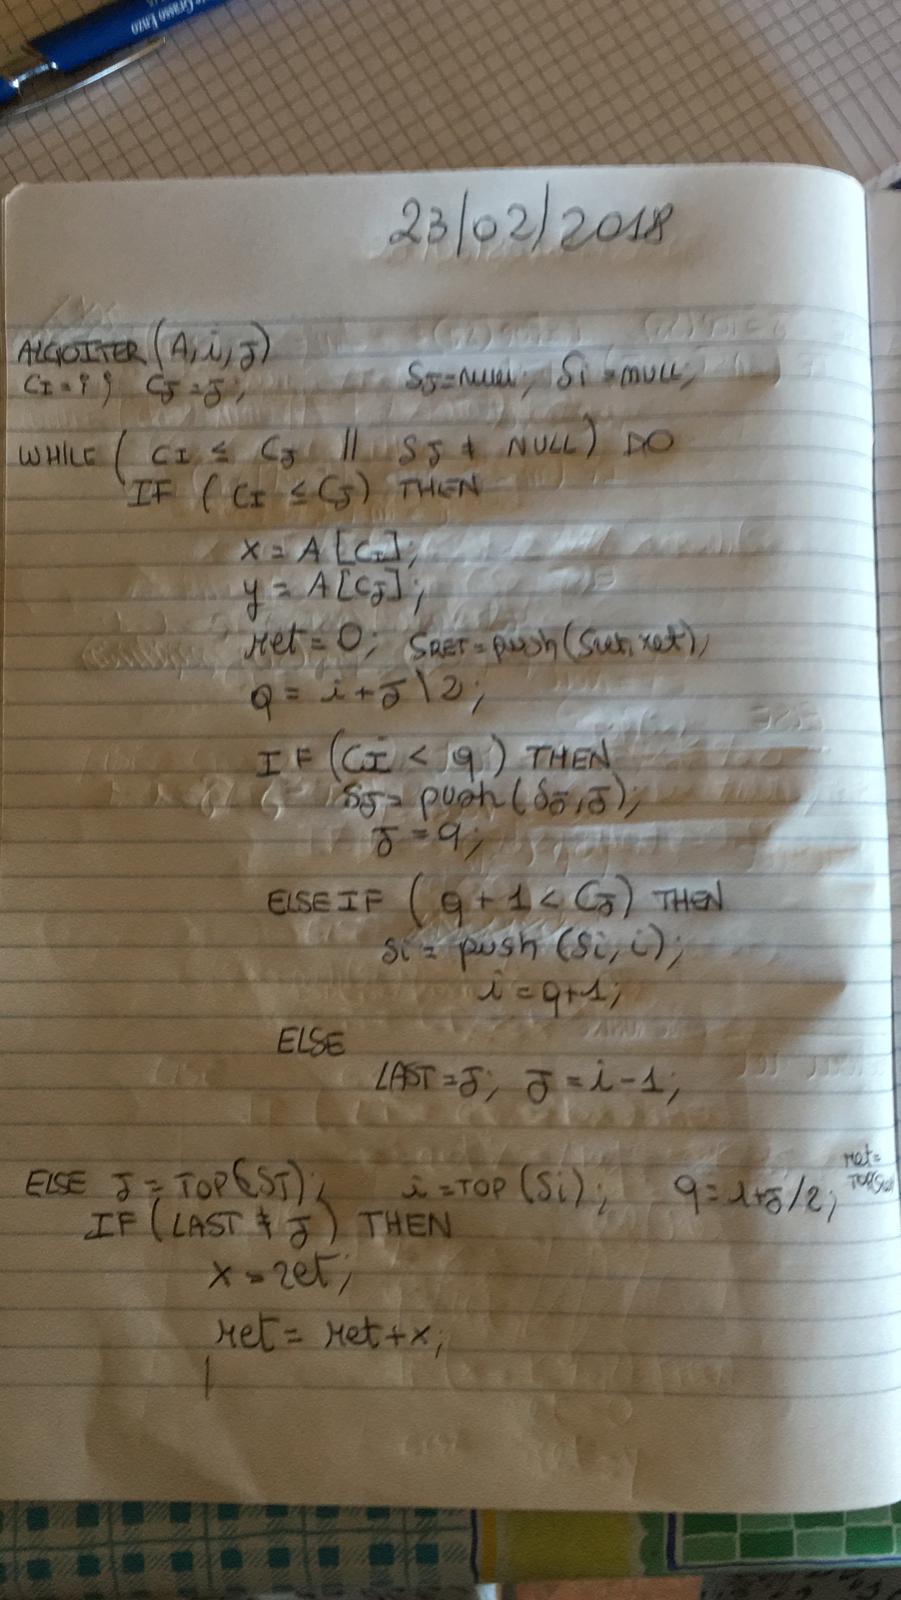 Grasso Enzo
23/02/2018
ALGOITER (A, i, J)
CI = i; CJ = J; SJ = NULL; Si = NULL;
WHILE ( CI ≤ CJ || SJ ≠ NULL) DO
IF ( CI ≤ CJ) THEN
x = A [CI];
y = A [CJ];
ret = 0; SRET = push (Sret, ret);
q = i + J \ 2;
IF (CI < q) THEN
SJ = push (SJ, J);
J = q;
ELSE IF ( q + 1 < CJ) THEN
Si = push (Si, i);
i = q+1;
ELSE
LAST = J; J = i - 1;
ELSE J = TOP(SJ); i = TOP (Si); q = i+J/2; ret =
IF (LAST ≠ J) THEN
x = ret;
ret = ret + x;